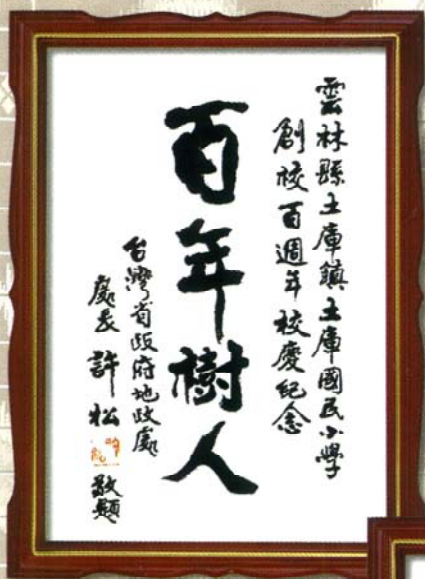 雲林縣土庫鎮土庫國民小學
創校百週年校慶紀念
百年樹人
台灣省政府地政處
處長 許松 敬題